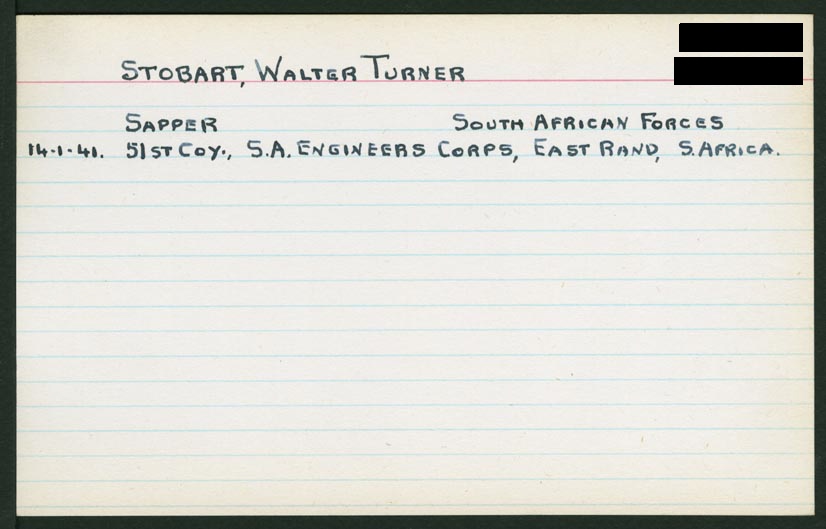 STOBART, WALTER TURNER
SAPPER SOUTH AFRICAN FORCES
14.1.41. 51ST COY., S.A. ENGINEERS CORPS, EAST RAND, S. AFRICA.